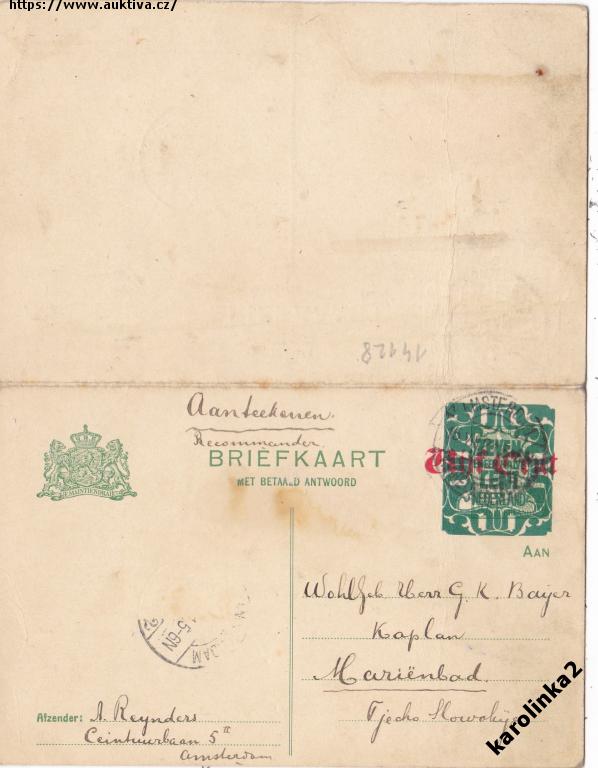 https://www.auktiva.cz/
14128
Aanteekenen.
Recommander
BRIEFKAART
MET BETAALD ANTWOORD
JE MAINTIENDRAI
Vijf Cent
ZEVEN
CENT
NEDERLAND
AAN
Wohlgeb Herr G. K. Bayer
Kaplan
Mariënbad.
Tjecho Slowakije
5-6N
DAM
Afzender: A. Reynders
Ceintuurbaan 5 II
Amsterdam
karolinka2